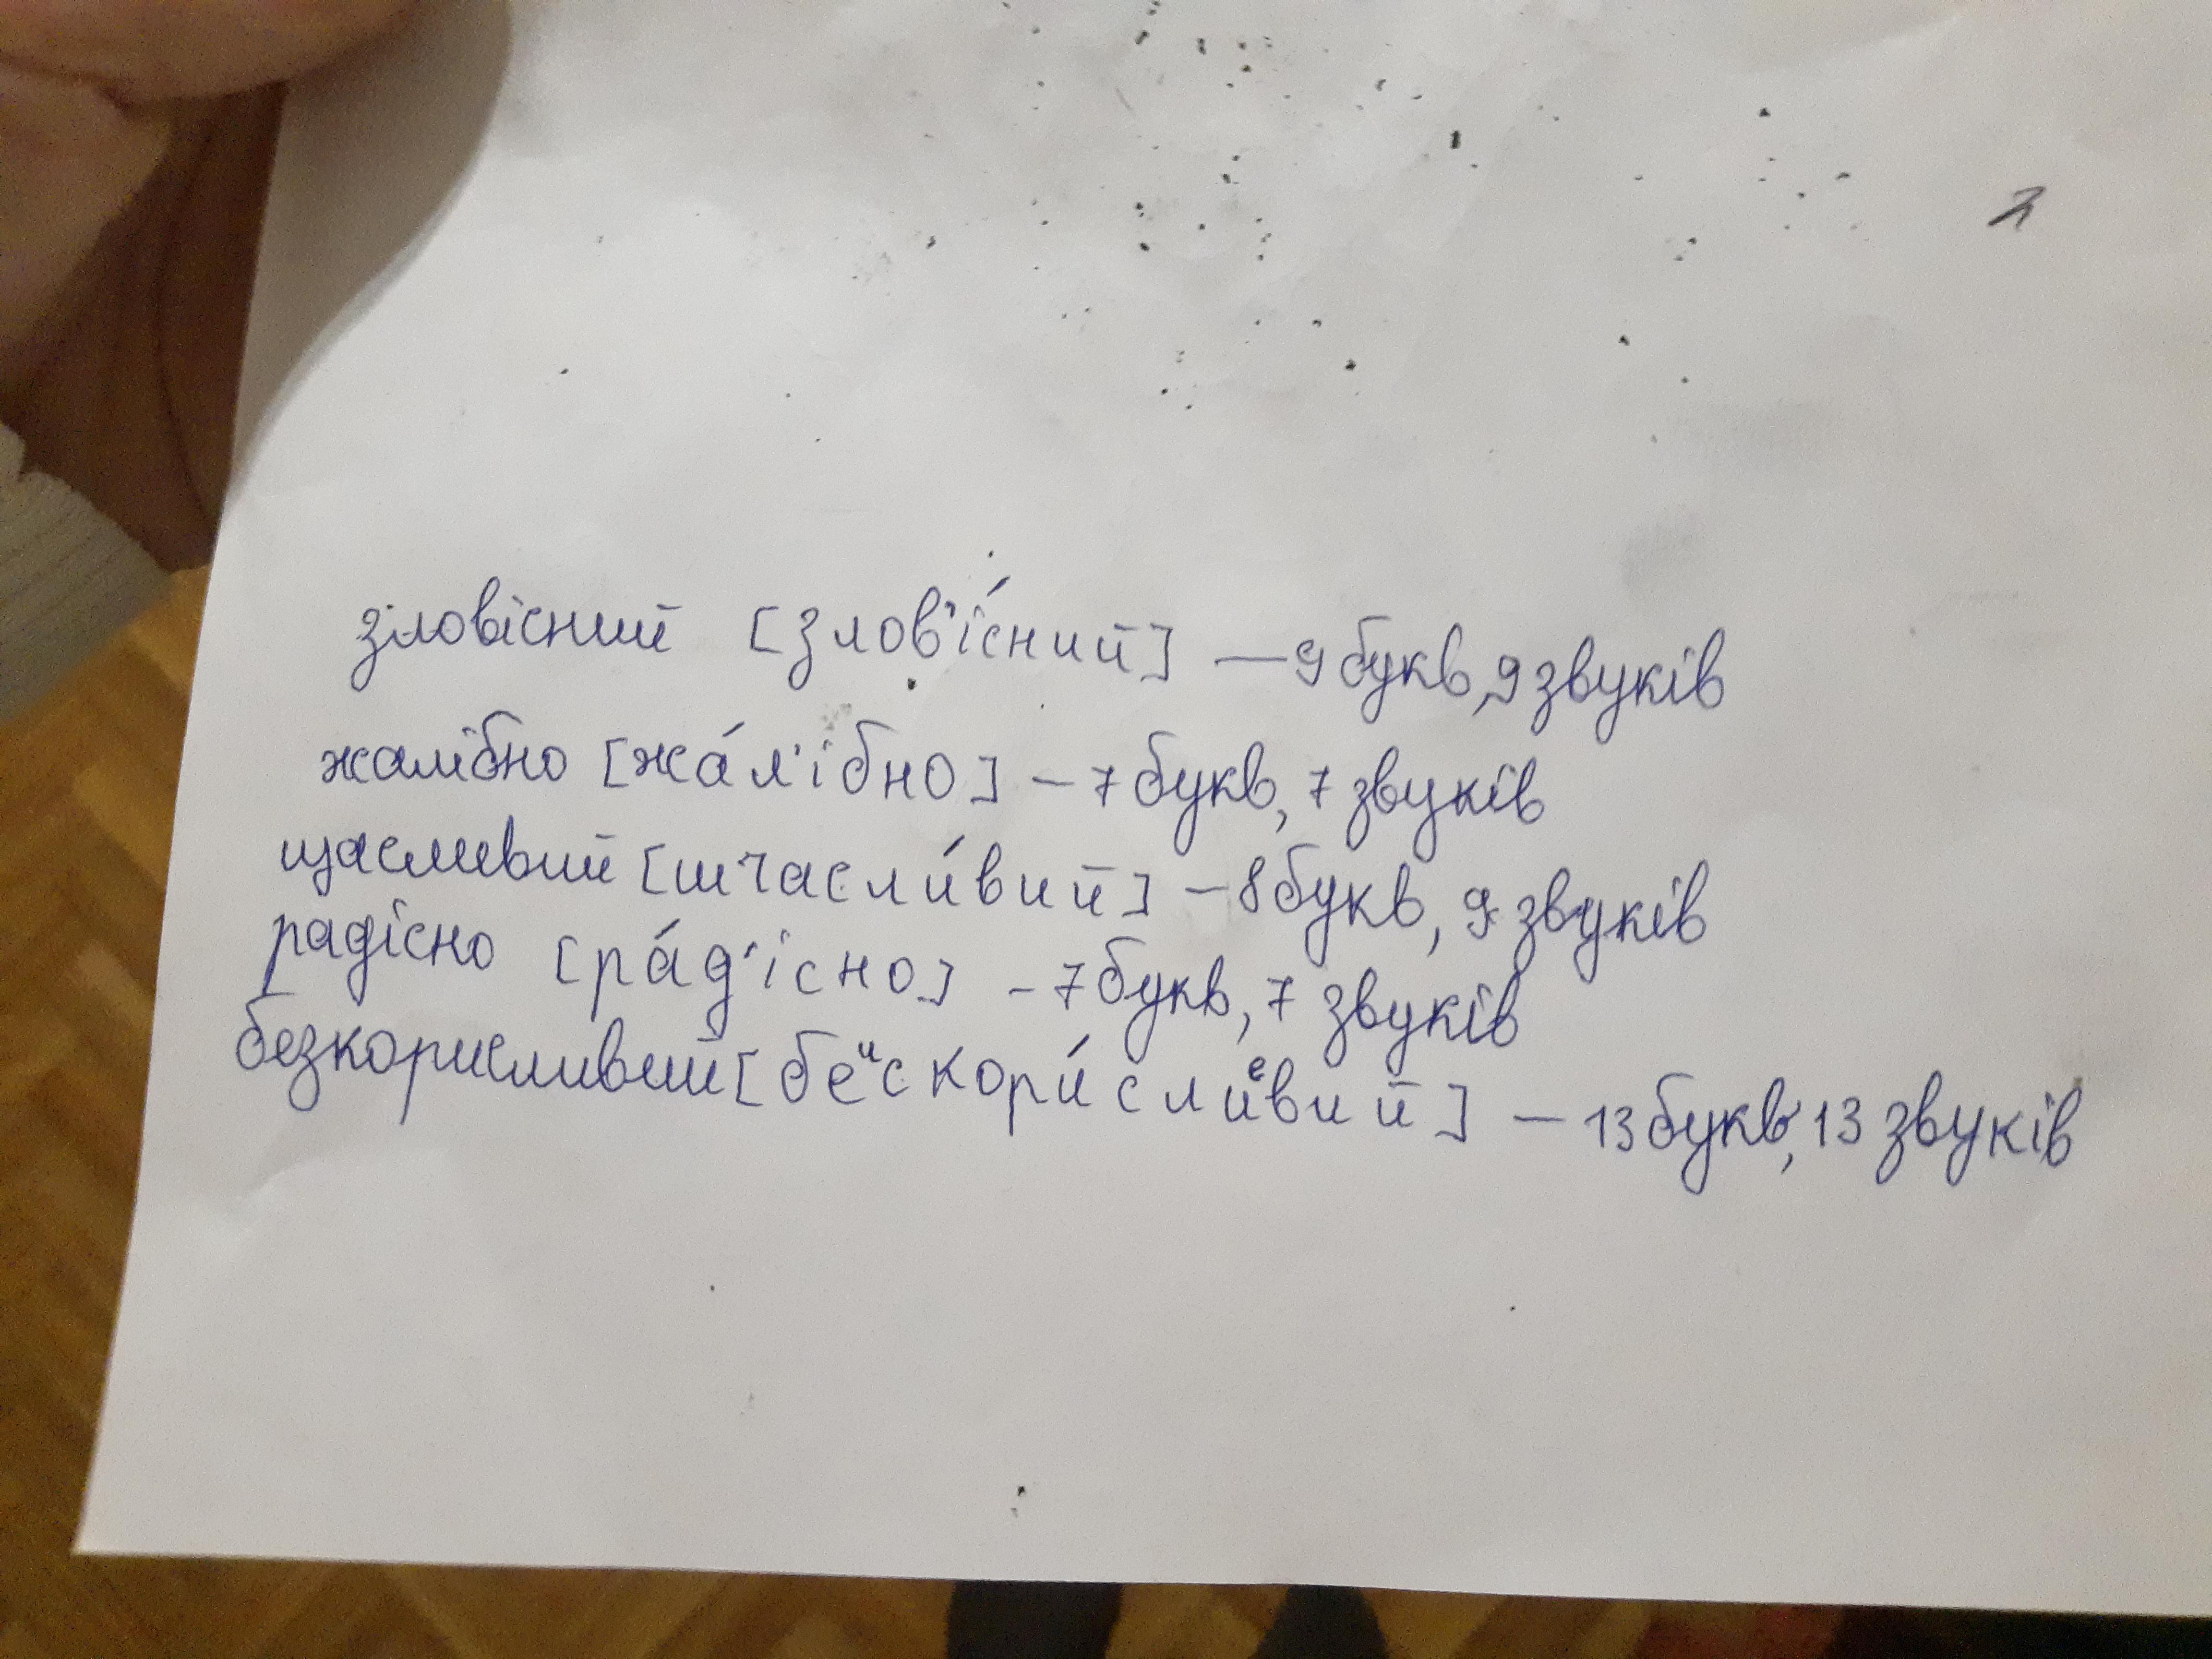 зловісний [злов'і́сний] — 9 букв, 9 звуків
жалібно [жа́л'ібно] – 7 букв, 7 звуків
щасливий [шчасли́вий] – 8 букв, 9 звуків
радісно [ра́д'існо] – 7 букв, 7 звуків
безкорисливий [беᴻскори́слиᵉвий] – 13 букв, 13 звуків